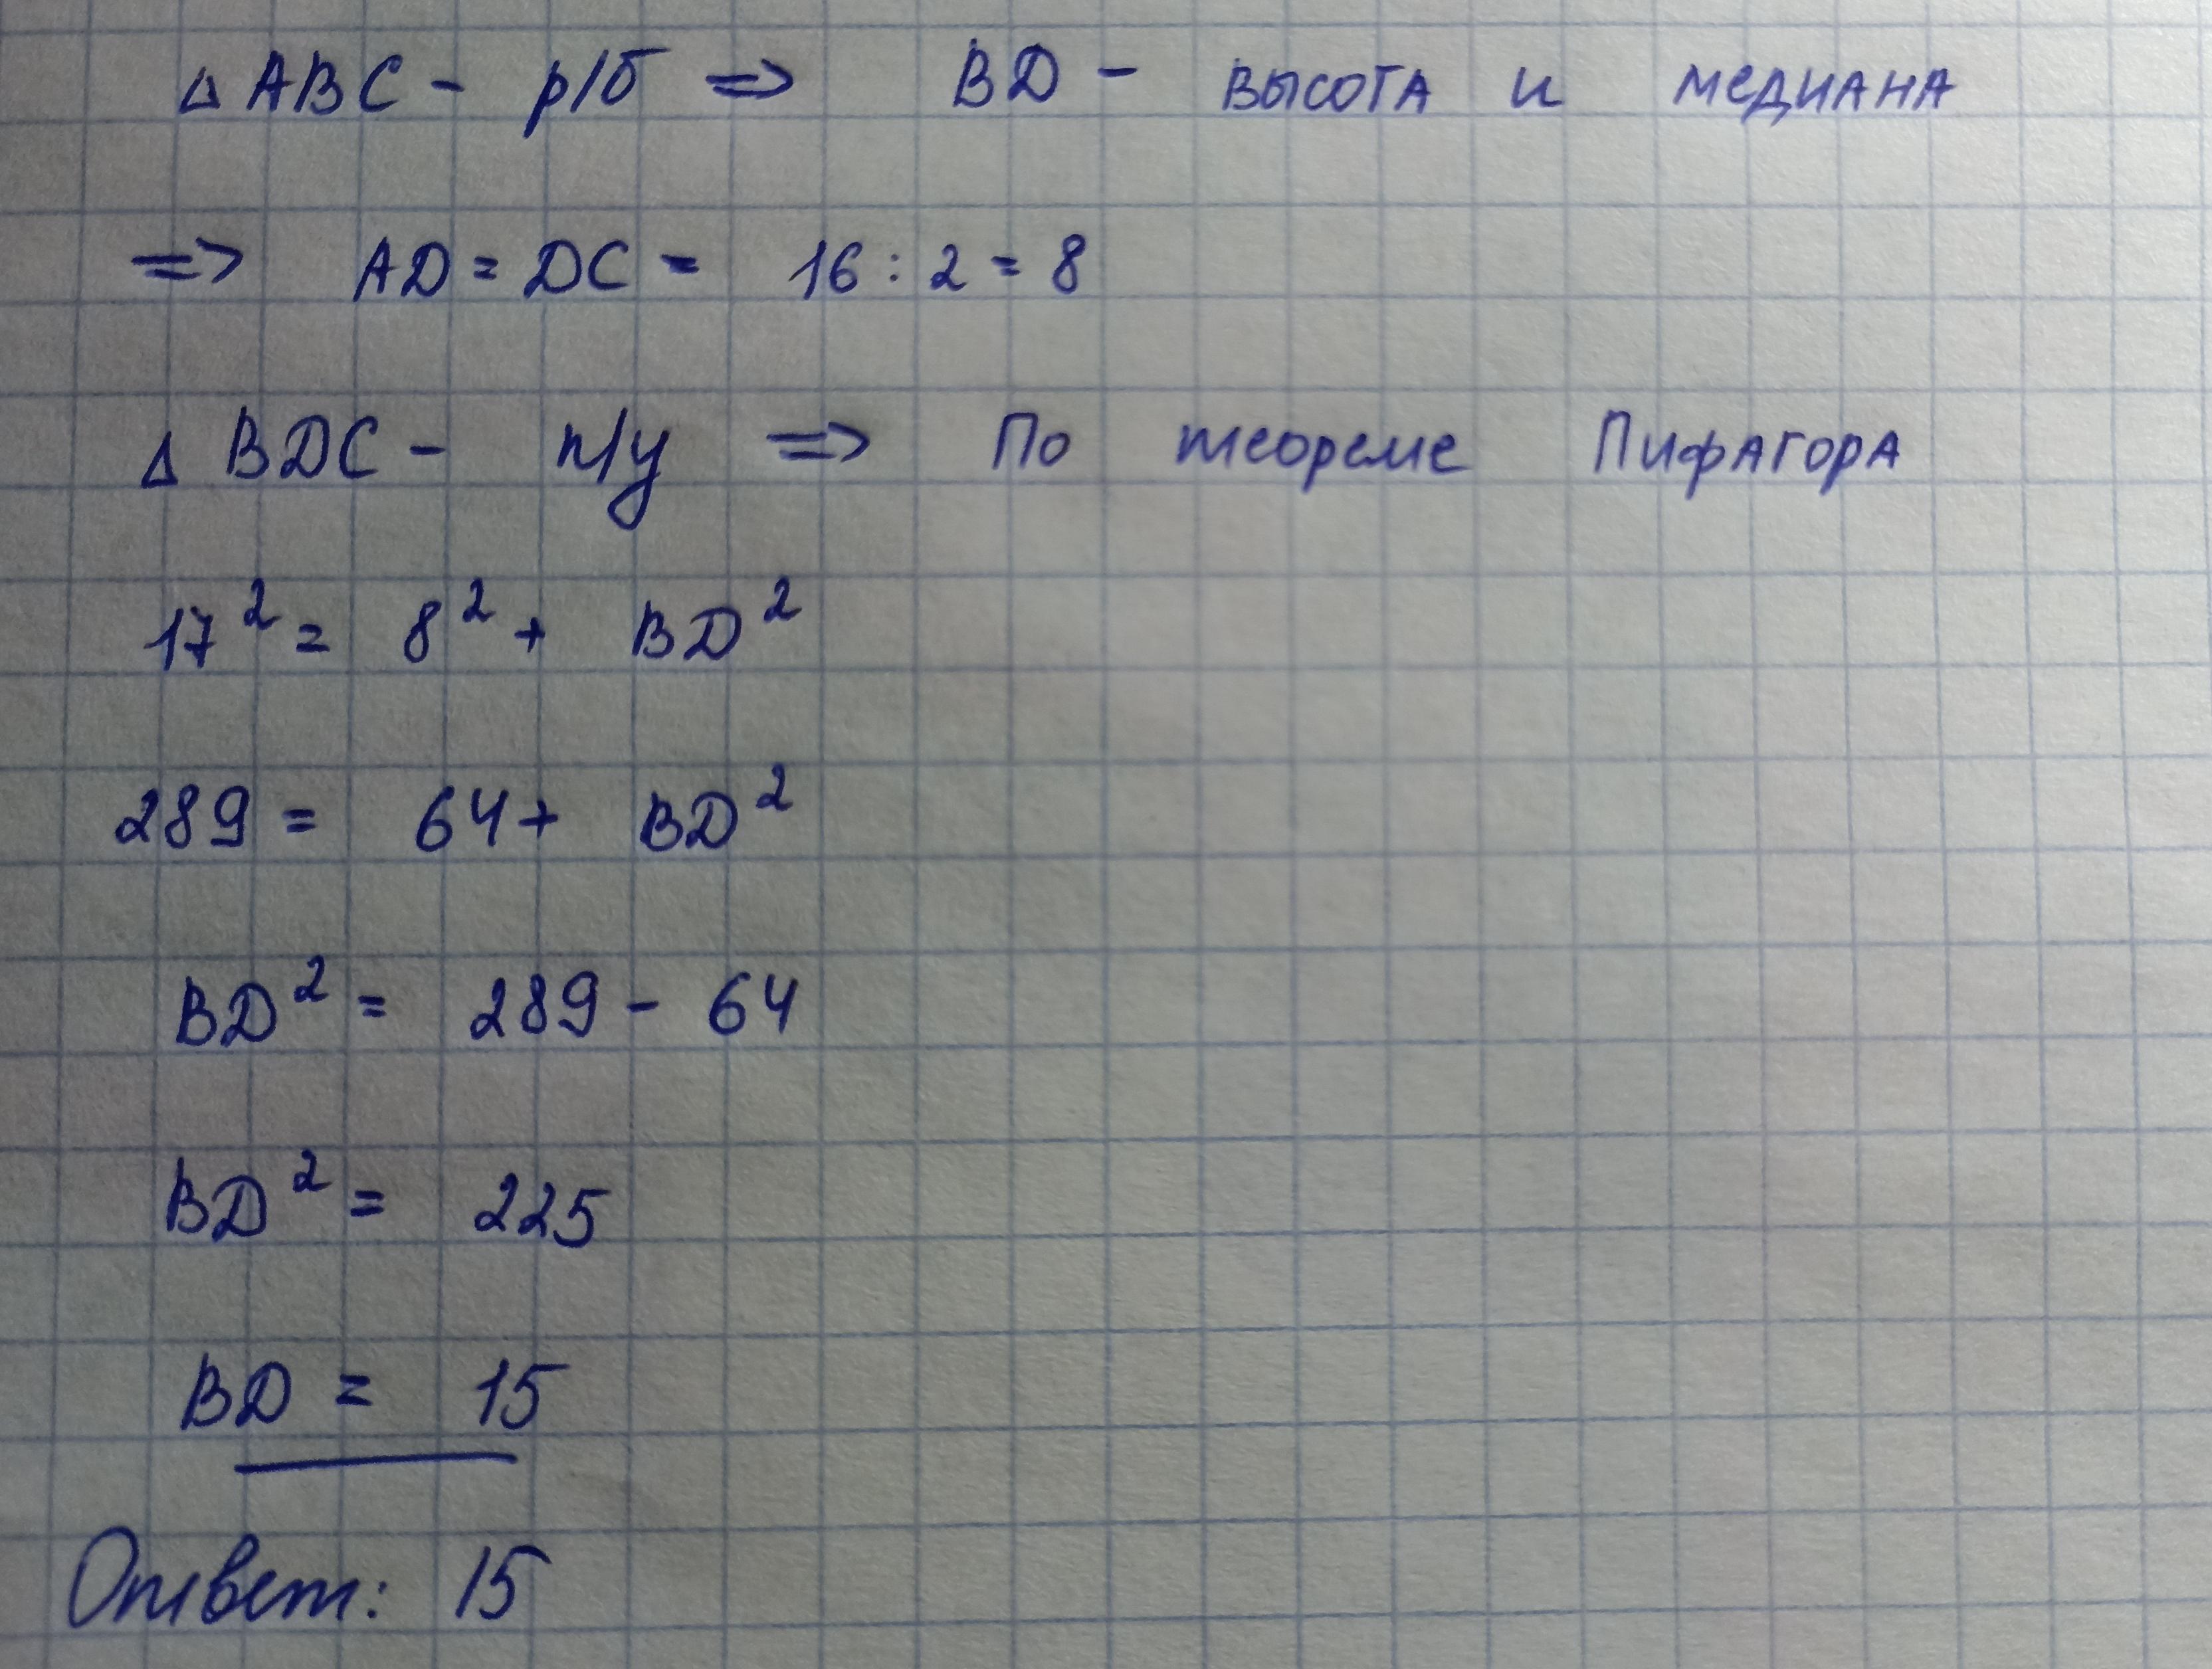 △ ABC - р/б => BD - высота и медиана
=> AD = DC = 16 : 2 = 8
△ BDC - п/у => По теореме Пифагора
17² = 8² + BD²
289 = 64 + BD²
BD² = 289 - 64
BD² = 225
BD = 15
Ответ: 15